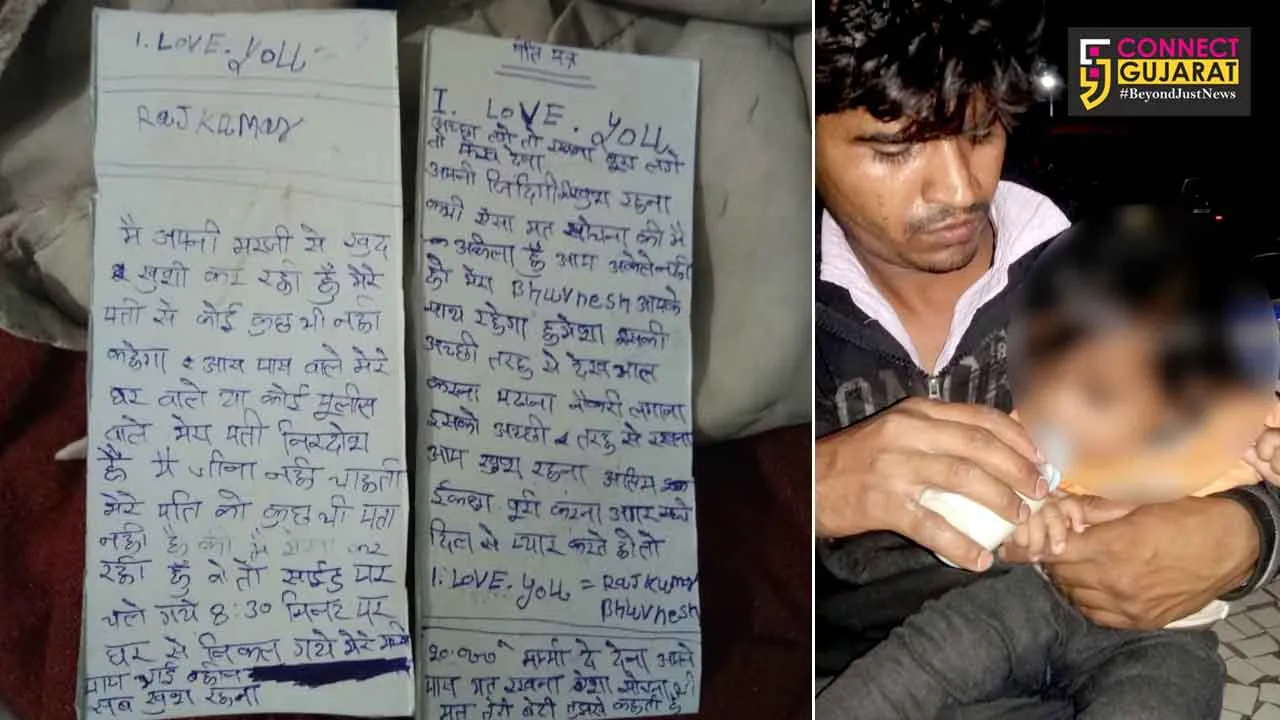 I. LOVE. YOU =
RAJKUMAR
मै अपनी मरजी से खुद
खुशी कर रही हुँ मेरे
पती से कोई कुछ भी नही
कहेगा आस पास वाले मेरे
घर वाले या कोई पुलीस
वाले मेरा पती निरदोश
है मै जीना नही चाहती
मेरे पति को कुछ भी पता
नही है की मै ऐसा कर
रही हुँ वो तो साईड पर
चले गये 8:30 मिनट पर
घर से निकल गये मेरे
पापा भाई बहीन
सब खुश रहना
पति पत्र
I. LOVE. YOU
अच्छा लगे तो रखना बुरा लगे
तो फेक देना
अपनी जिदिगी खुश रहना
कभी ऐसा मत सोचना की मै
अकेला हुँ आप अकेले नही
हो मेरा Bhuvnesh आपके
साथ रहेगा हमेशा इसकी
अच्छी तरह से देख भाल
करना पढाना नौकरी लगाना
इसको अच्छी तरह से रखना
आप खुश रहना अंतिम
ईकछा पुरी करना अगर सच्चे
दिल से प्यार करते हो तो
I. LOVE. YOU = RAJKUMAR
Bhuvnesh
मम्मी दे देना अपने
पास मत रखना
बेटी तुझसे कहती है
CONNECT
GUJARAT
#BeyondJustNews